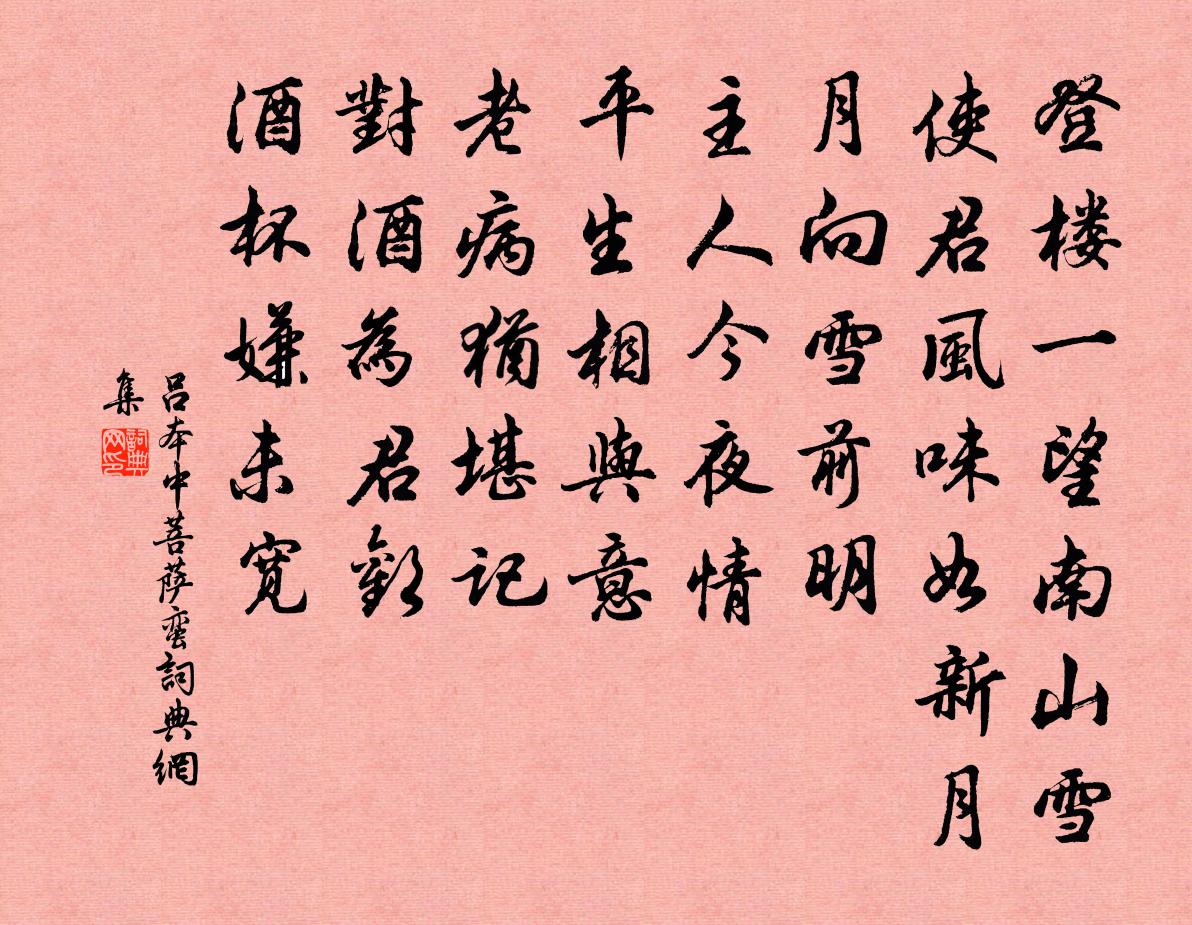 登楼一望南山雪
使君風味如新月
月向雪前明
主人今夜情
平生相與意
老病猶堪記
對酒為君歡
酒杯嫌未寬
吕本中菩萨蛮詞典網
集
詞典
网印